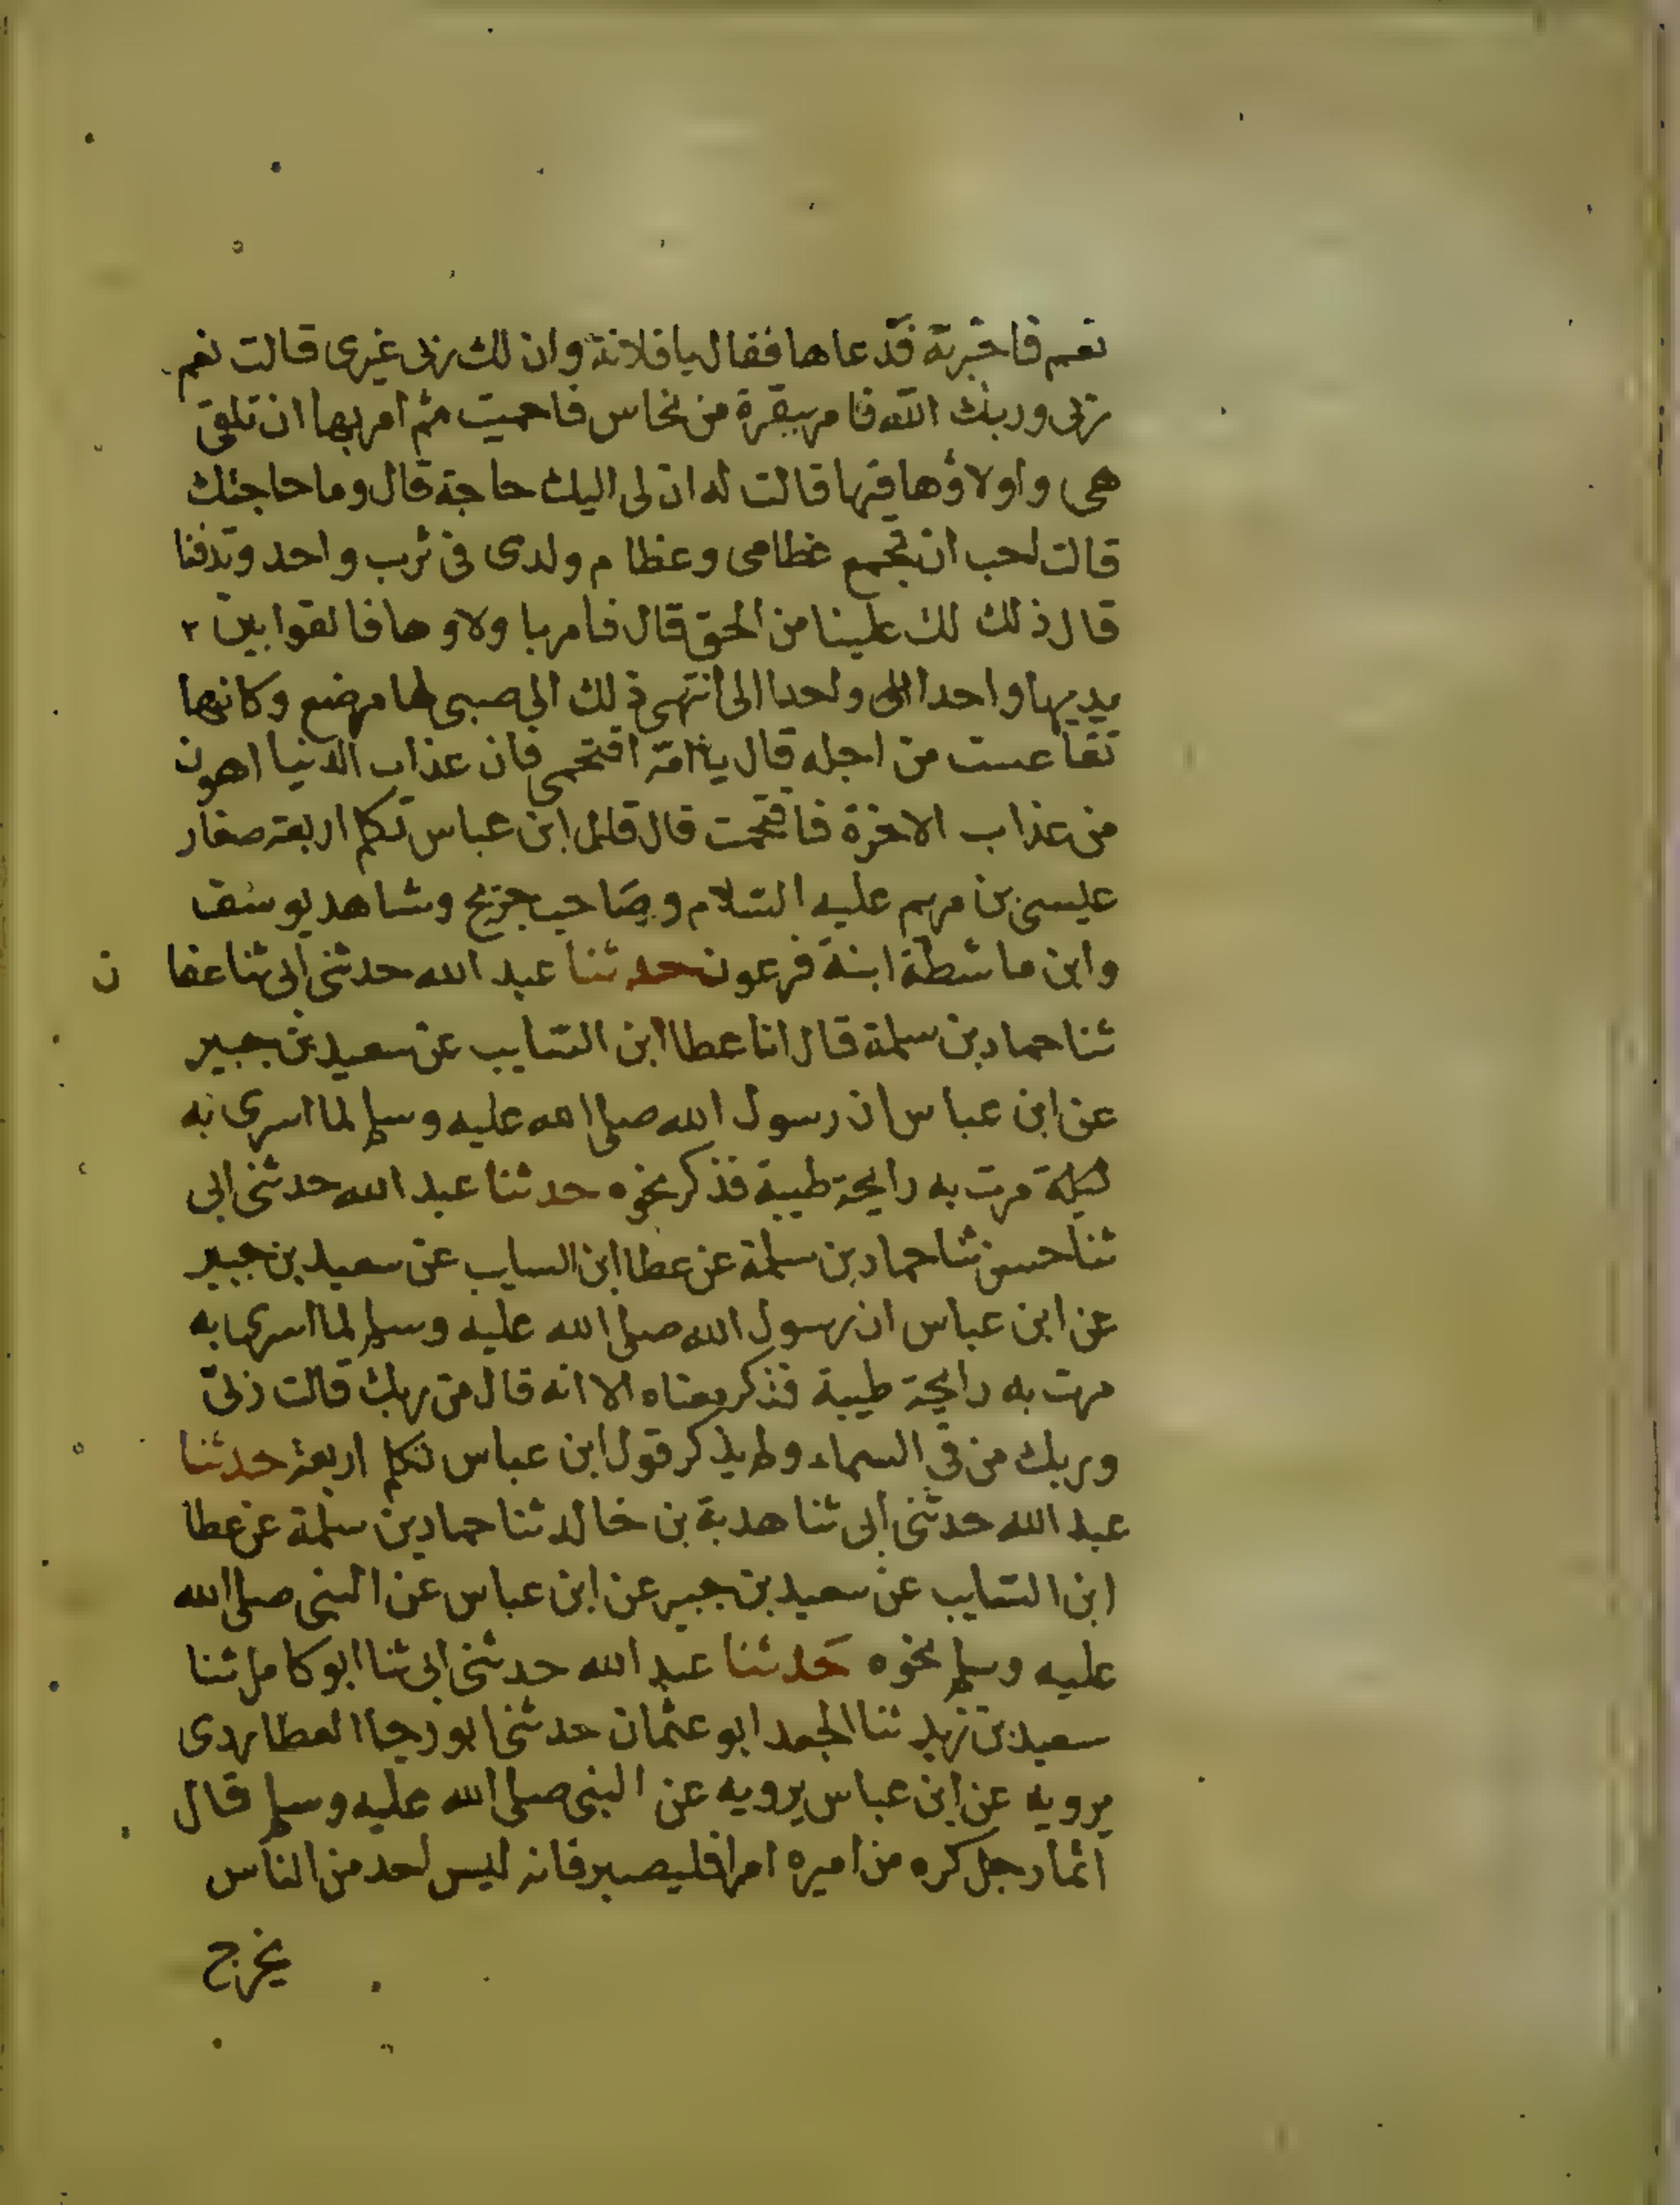 نعم فاخبرته فدعاها فقال يا فلانة وان لك ربى غيرى قالت نعم
ربى وربك الله فامر ببقرة من نحاس فاحميت ثم امر بها ان تلقى
هى واولاؤها فيها قالت له ان لى اليك حاجة قال وما حاجتك
قالت احب ان تجمع عظامى وعظام ولدى فى ثوب واحد وتدفنا
قال ذلك لك علينا من الحق قال فامر باولاوها فالقوا بين
يديها واحدا الى واحدا الى انتهى ذلك الى صبى لها مرضع وكانها
تقاعست من اجله قال يا امة اقتحمى فان عذاب الدنيا اهون
من عذاب الاخرة فاقتحمت قال قال ابن عباس تكلم اربعة صغار
عيسى بن مريم عليه السلام وصاحب جريج وشاهد يوسف
وابن ماشطة ابنة فرعون حدثنا عبد الله حدثنى ابى ثنا عفان
ثنا حماد بن سلمة قال انا عطا ابن السايب عن سعيد بن جبير
عن ابن عباس ان رسول الله صلى الله عليه وسلم لما اسرى به
ليلة مرت به رايحة طيبة فذكر نحوه حدثنا عبد الله حدثنى ابى
ثنا حسن ثنا حماد بن سلمة عن عطا ابن السايب عن سعيد بن جبير
عن ابن عباس ان رسول الله صلى الله عليه وسلم لما اسرى به
مرت به رايحة طيبة فذكر معناه الا انه قال من ربك قالت ربى
وربك من فى السماء ولم يذكر قول ابن عباس تكلم اربعة حدثنا
عبد الله حدثنى ابى ثنا هدبة بن خالد ثنا حماد بن سلمة عن عطا
ابن السايب عن سعيد بن جبير عن ابن عباس عن النبى صلى الله
عليه وسلم نحوه حدثنا عبد الله حدثنى ابى ثنا ابو كامل ثنا
سعيد بن زيد ثنا الجعد ابو عثمان حدثنى ابو رجا العطاردى
يرويه عن ابن عباس يرويه عن النبى صلى الله عليه وسلم قال
ايما رجل كره من اميره امرا فليصبر فانه ليس احد من الناس
يخرج